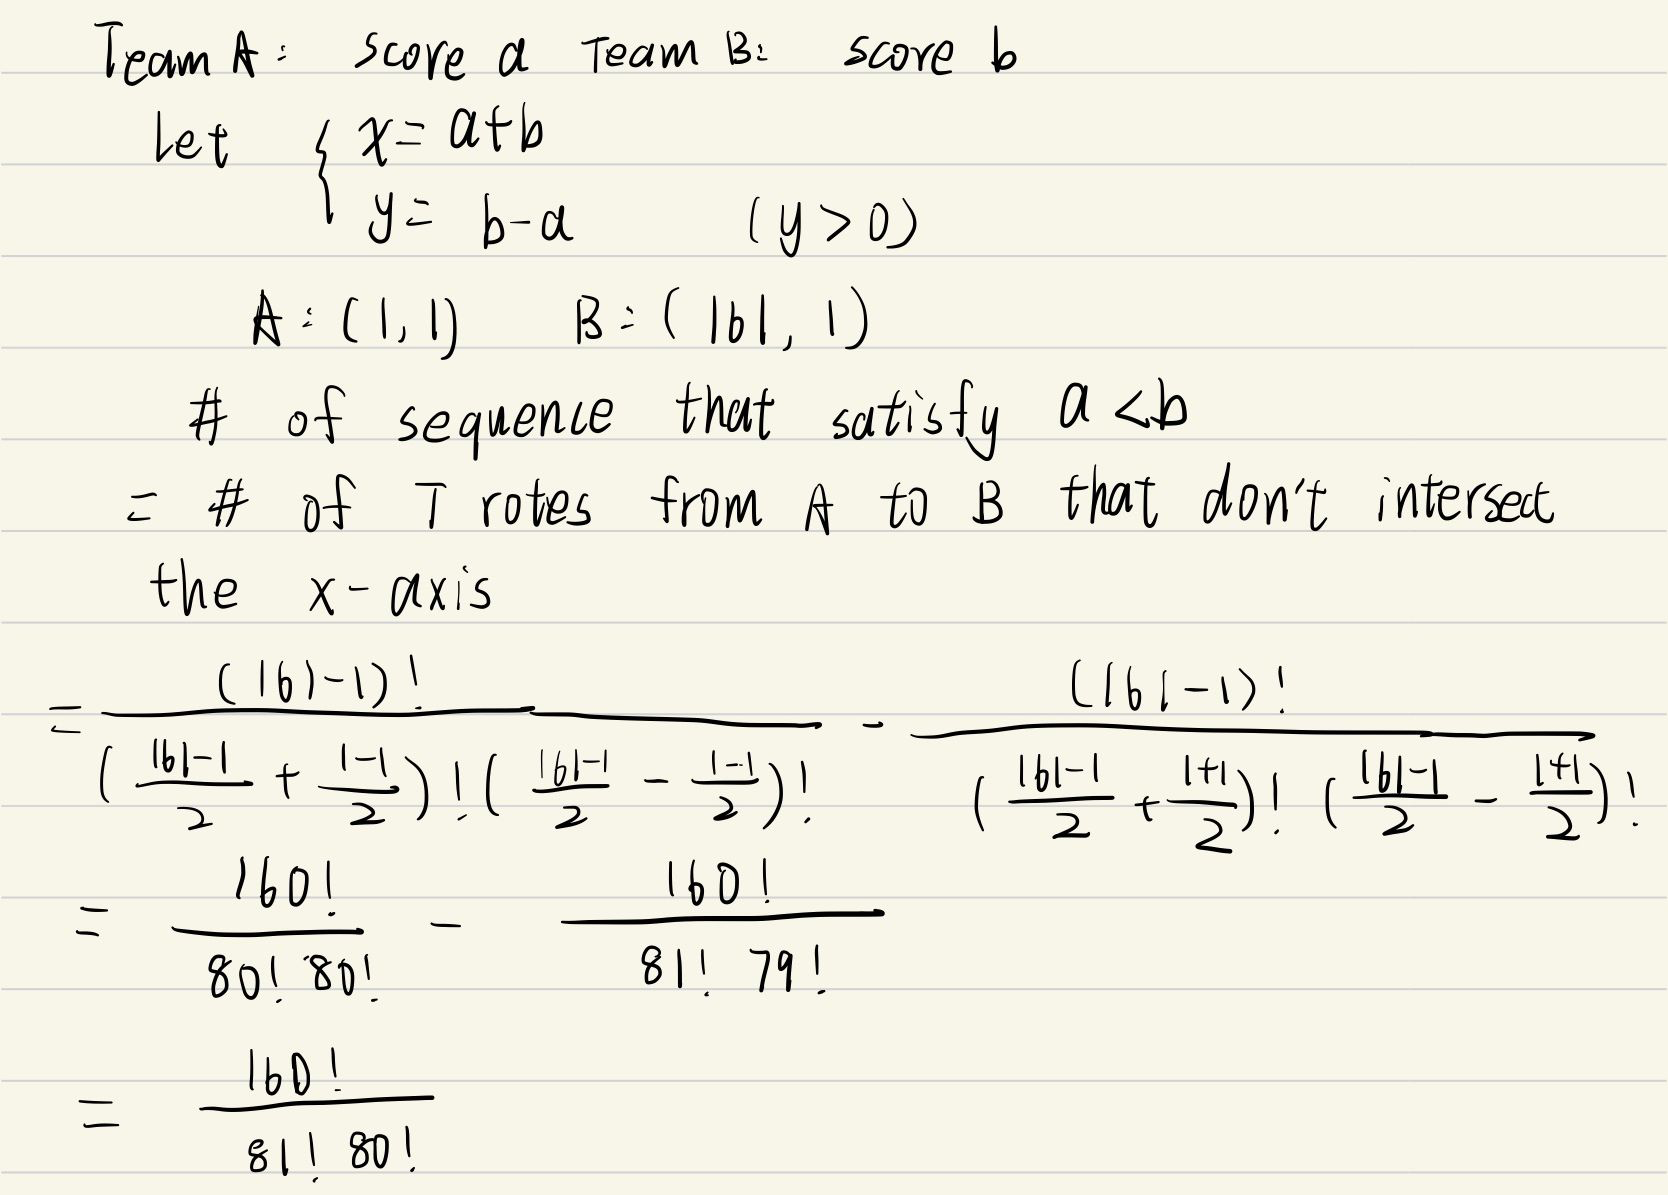 Team A: score a Team B: score b
Let { x = a+b
y = b-a (y>0)
A: (1,1) B: (161, 1)
# of sequence that satisfy a<b
= # of T rotes from A to B that don't intersect
the x-axis
= (161-1)! / ((161-1)/2 + (1-1)/2)! ((161-1)/2 - (1-1)/2)! - (161-1)! / ((161-1)/2 + (1+1)/2)! ((161-1)/2 - (1+1)/2)!
= 160! / 80! 80! - 160! / 81! 79!
= 160! / 81! 80!